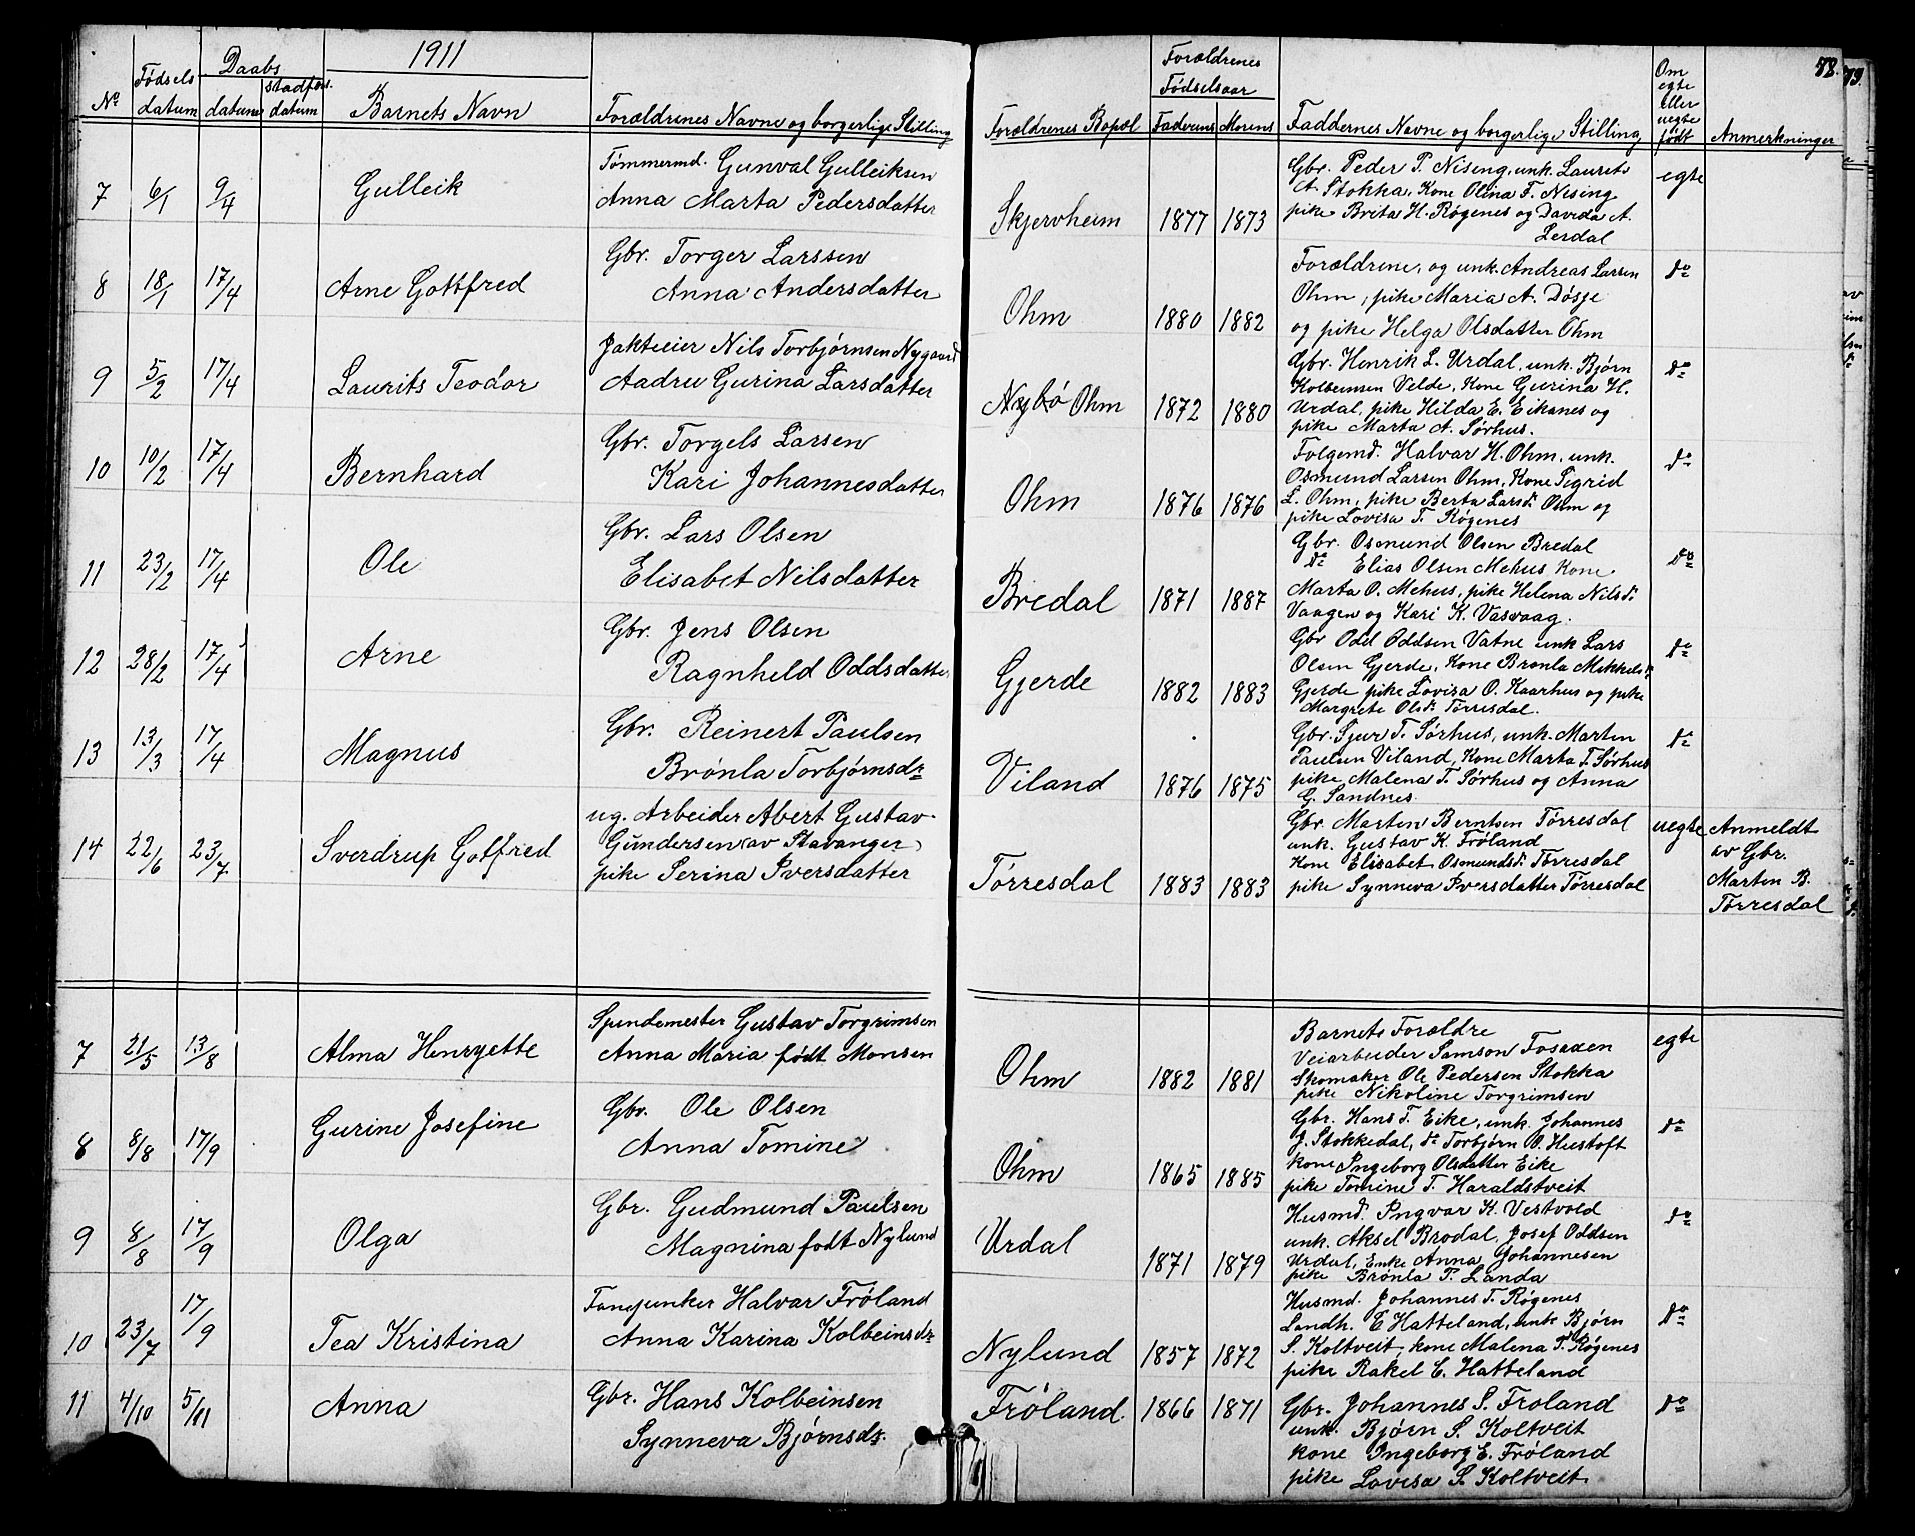 1911
78.
79.
Nº
Fødsels datum
Daabs datum
stadfæs. datum
Barnets Navn
Forældrenes Navne og borgerlige Stilling
Forældrenes Bopæl
Forældrenes Fødselsaar
Faderens
Morens
Faddernes Navne og borgerlige Stilling
Om egte eller uegte født
Anmerkninger
7 6/1 9/4 Gulleik
Tømmermd. Gunval Gulleiksen
Anna Marta Pedersdatter
Skjervheim 1877 1873
Gbr. Peder P. Nising, unk. Laurits
A. Stokka, Kone Olina F. Nising
pike Brita H. Røgenes og Davida A.
Lerdal
egte
8 18/1 17/4 Arne Gottfred
Gbr. Torger Larssen
Anna Andersdatter
Ohm 1880 1882
Forældrene, og unk. Andreas Larsen
Ohm, pike Maria A. Døsje
og pike Helga Olsdatter Ohm
do
9 5/2 17/4 Laurits Teodor
Jakteeier Nils Torbjørnsen Nygaard
Aadru Gurina Larsdatter
Nybø Ohm 1872 1880
Gbr. Henrik L. Urdal, unk. Bjørn
Kolbeinsen Velde, Kone Gurina H.
Urdal, pike Hilda E. Eiksnes og
pike Marta A. Sørhus.
do
10 10/2 17/4 Bernhard
Gbr. Torgels Larsen
Kari Johannesdatter
Ohm 1876 1876
Folgemd. Halvar H. Ohm, unk.
Osmund Larsen Ohm, Kone Sigrid
L. Ohm, pike Berta Larsd. Ohm og
pike Lovisa T. Røgenes
do
11 23/2 17/4 Ole
Gbr. Lars Olsen
Elisabet Nilsdatter
Bredal 1871 1887
Gbr. Osmund Olsen Bredal
do Elias Olsen Mehus Kone
Marta O. Mehus, pike Helena Nilsd.
Vaagen og Kari K. Vasvaag.
do
12 28/2 17/4 Arne
Gbr. Jens Olsen
Ragnheld Oddsdatter
Gjerde 1882 1883
Gbr Odd Oddsen Vatne unk Lars
Olsen Gjerde, Kone Brønla Mikkelsd.
Gjerde pike Lovisa O. Kaarhus og pike
Margrete Olsd. Tørresdal.
do
13 13/3 17/4 Magnus
Gbr. Reinert Paulsen
Brønla Torbjørnsdr
Viland 1876 1875
Gbr. Sjur T. Sørhus, unk. Marten
Paulsen Viland, Kone Marta T. Sørhus
pike Malena T. Sørhus og Anna
G. Sandnes.
do
14 22/6 23/7 Sverdrup Gotfred
ug. Arbeider Abert Gustav
Gundersen (av Stavanger)
pike Serina Iversdatter
Tørresdal 1883 1883
Gbr. Marten Berntsen Tørresdal
unk. Gustav K. Frøland
Kone Elisabet Osmundsd. Tørresdal
pike Synneva Iversdatter Tørresdal
uegte
Anmeldt
av Gbr.
Marten B.
Tørresdal
7 21/5 13/8 Alma Henryette
Spindemester Gustav Torgrimsen
Anna Maria født Monsen
Ohm 1882 1881
Barnets Forældre
Veiarbeider Samson Fosaaen
Skomaker Ole Pedersen Stokka
pike Nikoline Torgrimsen
egte
8 8/8 17/9 Gurine Josefine
Gbr. Ole Olsen
Anna Tomine
Ohm 1865 1885
Gbr. Hans T. Eike, unk. Johannes
J. Stokkedal, do Torbjørn O. Hustoft
kone Ingeborg Olsdatter Eike
pike Tomine T. Haraldstveit
do
9 8/8 17/9 Olga
Gbr. Gudmund Paulsen
Magnina født Nylund
Urdal 1871 1879
Husmd. Ingvar K. Vestvold
unk. Aksel Brodal, Josef Oddsen
Urdal, Enke Anna Johannesen
pike Brønla P. Landa
do
10 23/7 17/9 Tea Kristina
Fanejunker Halvar Frøland
Anna Karina Kolbeinsdr
Nylund 1857 1872
Husmd. Johannes T. Røgenes
Landh. E Hatteland, unk Bjørn
S. Koltveit, kone Malena T. Røgenes
pike Rakel E. Hatteland
do
11 4/10 5/11 Anna
Gbr. Hans Kolbeinsen
Synneva Bjørnsdr.
Frøland 1866 1871
Gbr. Johannes S. Frøland
unk. Bjørn S. Koltveit
kone Ingeborg E. Frøland
pike Lovisa S. Koltveit.
do